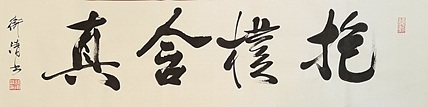 抱樸含真